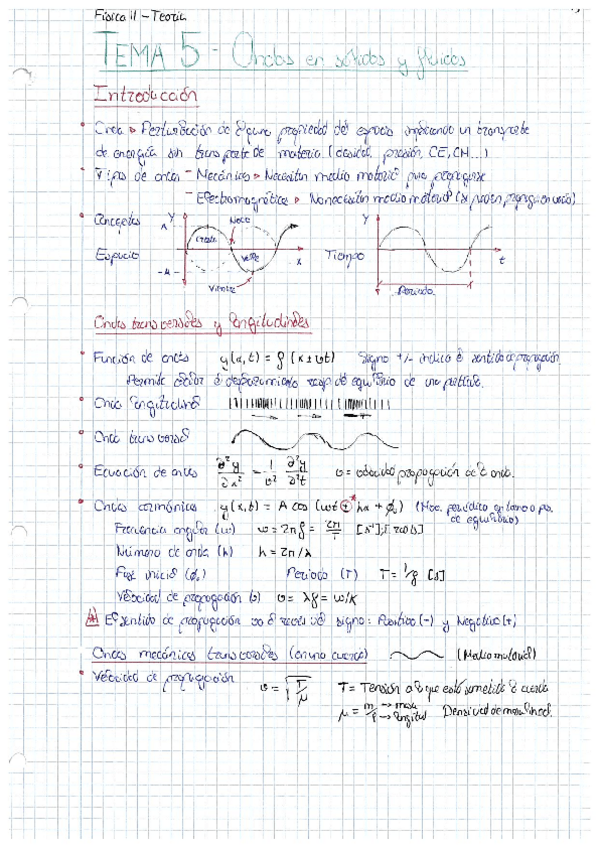 Física II - Teoría
TEMA 5 - Ondas en sólidos y fluidos
Introducción
Onda → Perturbación de alguna propiedad del espacio implicando un transporte
de energía sin transporte de materia (densidad, presión, CE, CM...)
Tipos de ondas - Mecánicas → Necesitan medio material para propagarse
- Electromagnéticas → No necesitan medio material (se pueden propagar en vacío)
Conceptos
Y
A
Nodo
Cresta
Valle
Espacio
-A
x
Vientre
Y
Tiempo
t
Periodo
Ondas transversales y longitudinales
Función de ondas y(x,t) = f(x ± vt) Signo +/- indica el sentido de propagación
Permite calcular el desplazamiento respecto del equilibrio de una partícula.
Onda longitudinal
Onda transversal
Ecuación de ondas ∂²y/∂x² = 1/v² ∂²y/∂²t v = velocidad propagación de la onda.
Ondas armónicas y(x,t) = A cos (ωt ± kx + ϕ₀) (Mov. periódico en torno a pos.
de equilibrio)
Frecuencia angular (ω) ω = 2πf = 2π/T [s⁻¹] [rad/s]
Número de onda (k) k = 2π/λ
Fase inicial (ϕ₀) Periodo (T) T = 1/f [s]
Velocidad de propagación (v) v = λf = ω/k
El sentido de propagación va a través del signo: Positivo (-) y Negativo (+)
Ondas mecánicas transversales (en una cuerda) (Medio material)
Velocidad de propagación v = √T/μ T = Tensión a la que está sometida la cuerda
μ = m/l → masa → longitud Densidad de masa lineal.